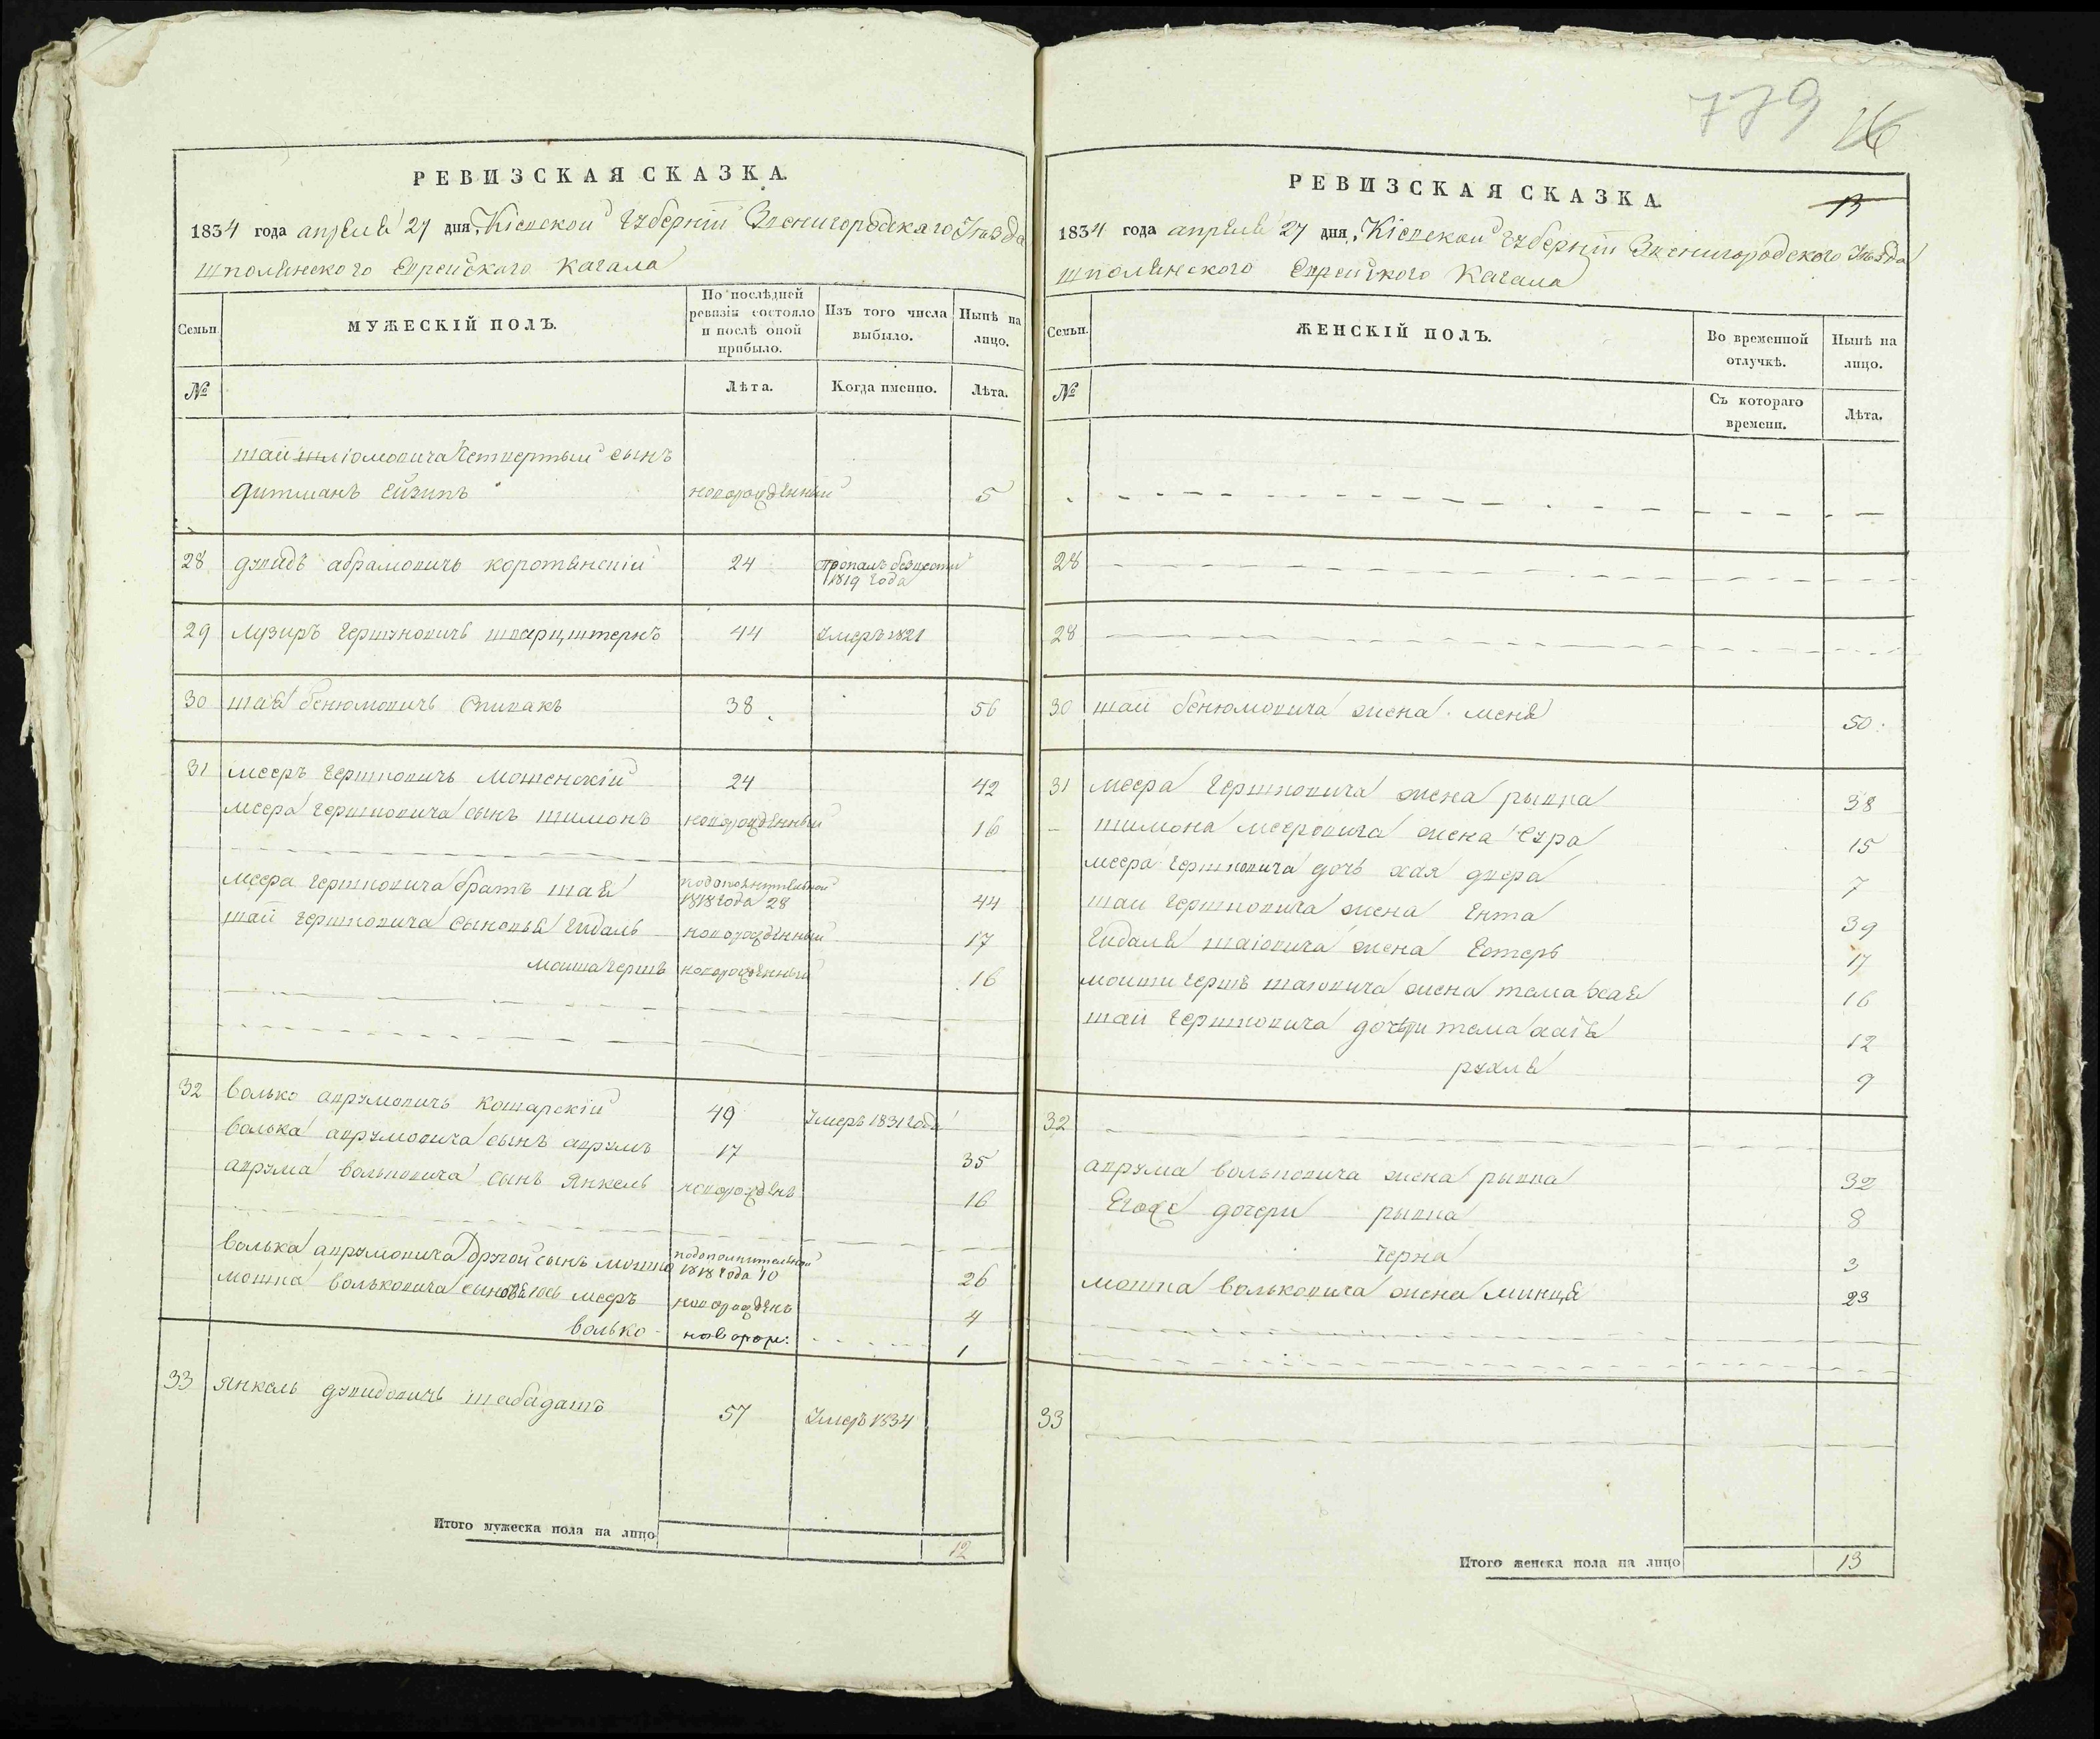 РЕВИЗСКАЯ СКАЗКА.
1834 года апреля 27 дня, Кіевской губерніи Звенигородскаго Уезда
шполянского Еврейскаго Кагала
Семьи.
МУЖЕСКІЙ ПОЛЪ.
По послѣдней ревизіи состояло и послѣ оной прибыло.
Изъ того числа выбыло.
Нынѣ на лицо.
№
Лѣта.
Когда именно.
Лѣта.
шаи шлiомовича четвертый сынъ
новорожденный 5
28 дувидъ абрамовичь коротянскій 24 пропалъ безвести
1819 года
29 лузиръ гершуновичь шварцштернъ 44 Умеръ 1821
30 шая бенюмовичь Спивакъ 38 56
31 мееръ гершковичь мошенскій 24 42
меера гершковича сынъ шимонъ новорожденный 16
меера гершковича братъ шая подополнительной
1818 года 28 44
шаи гершковича сыновья гидаль новорожденный 17
мошка гершъ новорожденный 16
32 Волько аврумовичь Кошарскій 49 Умеръ 1831 года
Волька аврумовича сынъ аврумъ 17 35
аврума Вольковича сынъ Янкель новорожденъ 16
Волька аврумовича Другой сынъ мошко подополнительной
1818 года 10 26
мошка Вольковича сыновья мееръ новорожденъ 4
Волько новорож: 1
33 Янкель дувидовичь 57 Умеръ 1834
Итого мужеска пола на лицо 12
779 16
РЕВИЗСКАЯ СКАЗКА.
13
1834 года апреля 27 дня, Кіевской губерніи Звенигородского Уезда
шполянского Еврейского Кагала
Семьи.
ЖЕНСКІЙ ПОЛЪ.
Во временной отлучкѣ.
Нынѣ на лицо.
№
Съ котораго времени.
Лѣта.
28
28
30 шаи бенюмовича жена меня 50
31 меера гершковича жена рывка 38
шимона мееровича жена сура 15
меера гершковича дочь хая двера 7
шаи гершковича жена Ента 39
гидаля шаiовича жена Естерь 17
мошки гершъ шаiовича жена тема хая 16
шаи гершковича дочери тема хаiя 12
рухля 9
32
аврума Вольковича жена рывка 32
Егоже дочери рывка 8
черна 3
мошка Вольковича жена минця 23
33
Итого женска пола на лицо 13